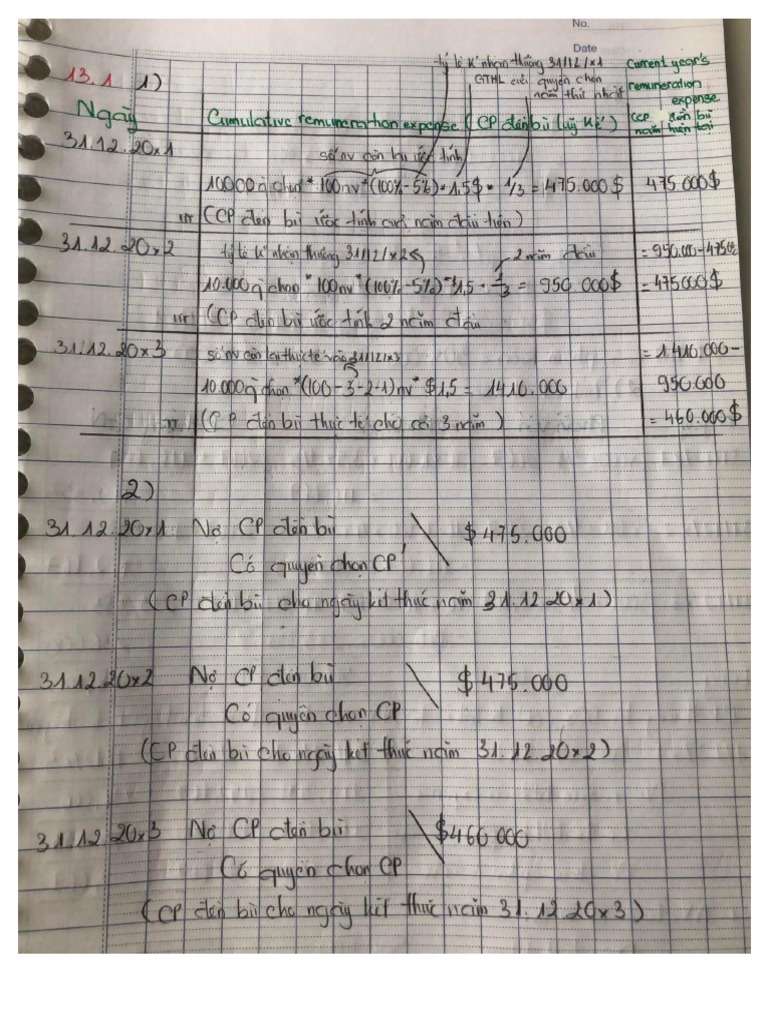 No.
Date
13.1 1)
tỷ lệ k' nhận thưởng 31/12/x1
GTHL của quyền chọn
năm thứ nhất
Current year's
remuneration
expense
(CP đền bù
năm hiện tại
Ngày
Cumulative remuneration expense (CP đền bù luỹ kế)
31.12.20x1
số nv còn lại ước tính
10000 q chọn * 100nv * (100% - 5%) * 1,5$ * 1/3 = 475.000$
475.000$
(CP đền bù ước tính của năm đầu tiên)
31.12.20x2
tỷ lệ k' nhận thưởng 31/12/x2
2 năm đầu
= 950.000 - 475000
10.000 q chọn * 100nv * (100% - 5%) * 1,5 * 2/3 = 950.000$
= 475000$
(CP đền bù ước tính 2 năm đầu
31.12.20x3
số nv còn lại thực tế vào 31/12/x3
= 1.410.000 -
10.000 q chọn * (100 - 3 - 2 - 1)nv * $1,5 = 1410.000
950.000
(CP đền bù thực tế cho cả 3 năm)
= 460.000$
2)
31.12.20x1 Nợ CP đền bù
$475.000
Có quyền chọn CP
(CP đền bù cho ngày kết thúc năm 31.12 20x1)
31.12.20x2 Nợ CP đền bù
$475.000
Có quyền chọn CP
(CP đền bù cho ngày kết thúc năm 31.12 20x2)
31.12.20x3 Nợ CP đền bù
$460.000
Có quyền chọn CP
(CP đền bù cho ngày kết thúc năm 31.12 20x3)